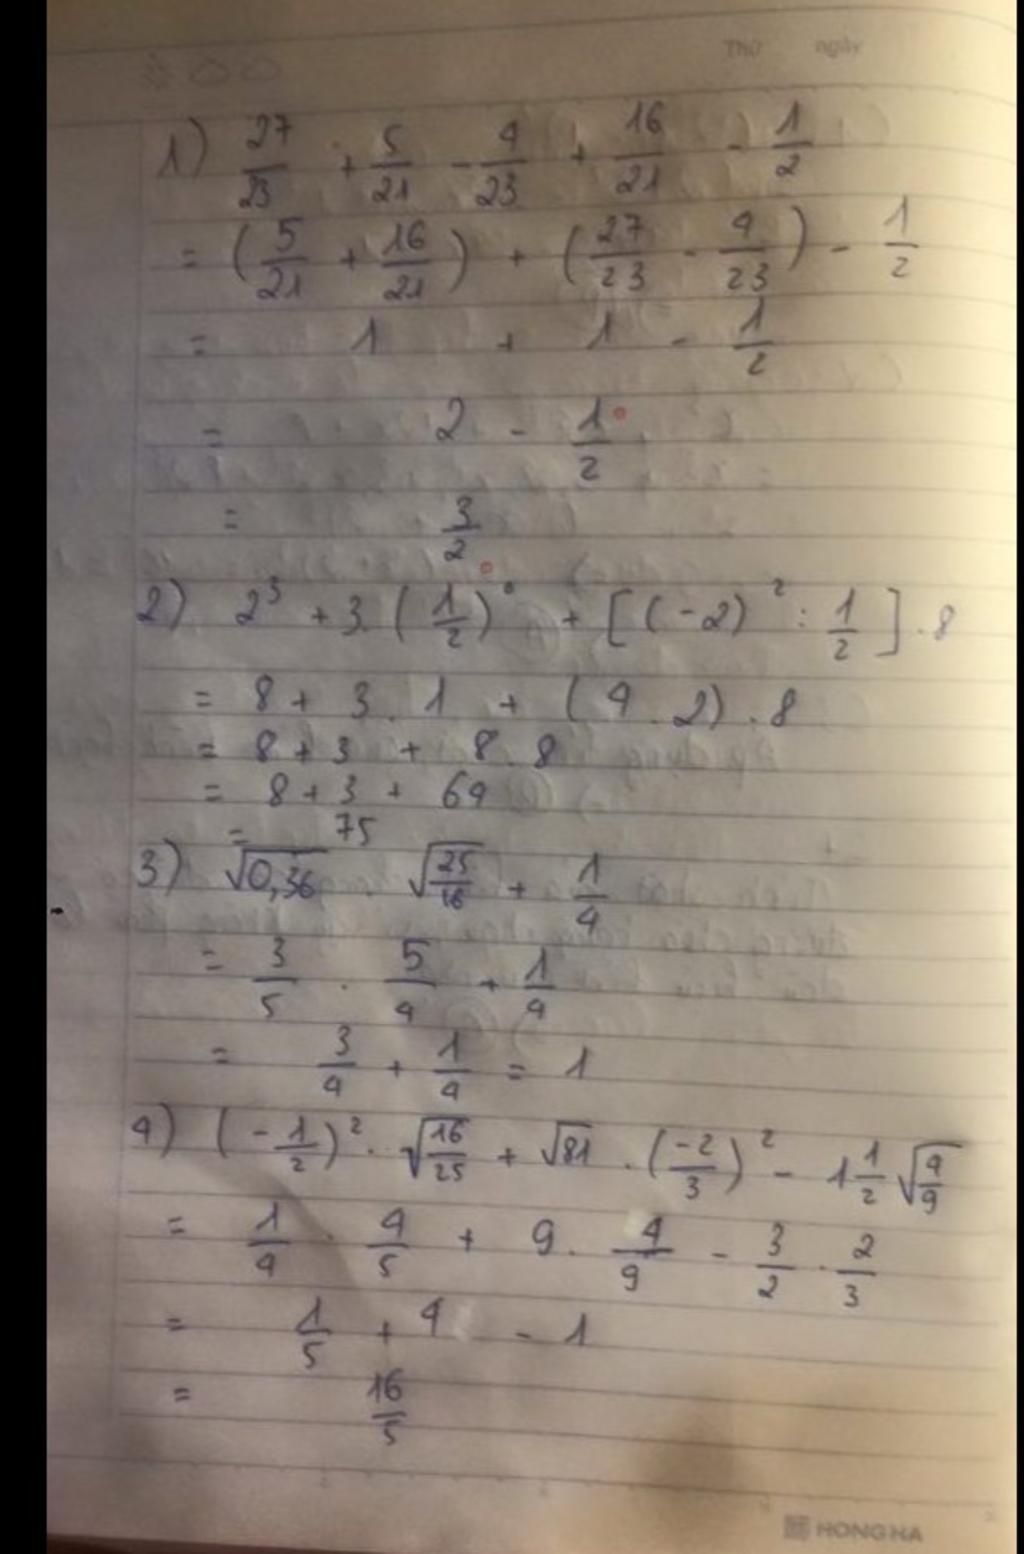 Thứ ngày
1) 27/23 + 5/21 - 4/23 + 16/21 - 1/2
= (5/21 + 16/21) + (27/23 - 4/23) - 1/2
= 1 + 1 - 1/2
= 2 - 1/2
= 3/2
2) 2³ + 3. (1/2)⁰ + [(-2)² : 1/2] . 8
= 8 + 3 . 1 + (4 . 2) . 8
= 8 + 3 + 8 . 8
= 8 + 3 + 64
= 75
3) √0,36 . √(25/16) + 1/4
= 3/5 . 5/4 + 1/4
= 3/4 + 1/4 = 1
4) (-1/2)² . √(16/25) + √81 . (-2/3)² - 1 1/2 √(4/9)
= 1/4 . 4/5 + 9 . 4/9 - 3/2 . 2/3
= 1/5 + 4 - 1
= 16/5
HONG HA